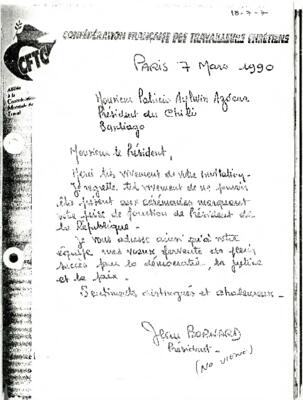 18-7-7
CFTC
CONFÉDÉRATION FRANÇAISE DES TRAVAILLEURS CHRÉTIENS
Affiliée
à la
Confédération
Mondiale du
Travail
PARIS 7 Mars 1990
Monsieur Patricio Aylwin Azócar
Président du Chili
Santiago
Monsieur le Président,
Merci très vivement de votre invitation.
Je regrette très vivement de ne pouvoir
être présent aux cérémonies marquant
votre prise de fonction de Président de
la République.
Je vous adresse ainsi qu'à votre
équipe mes voeux fervents de plein
succès pour la démocratie, la justice
et la paix.
Sentiments distingués et chaleureux.
Jean BORNARD
Président
(NO VIENE)